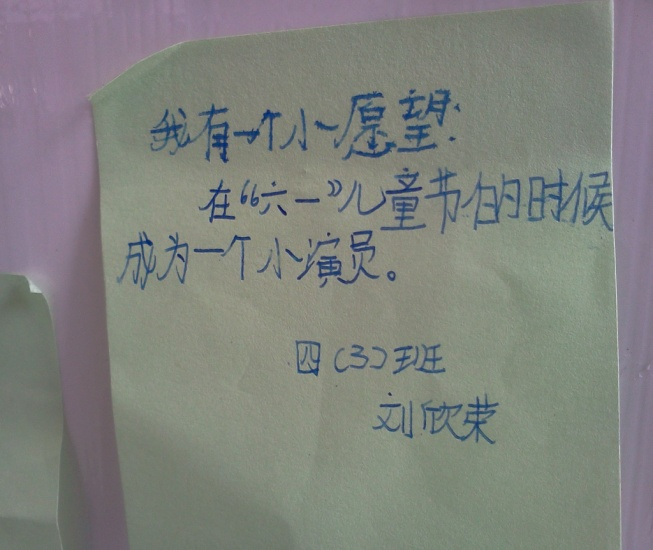 我有一个小愿望:
在“六一”儿童节的时候
成为一个小演员。
四(3)班
刘欣荣